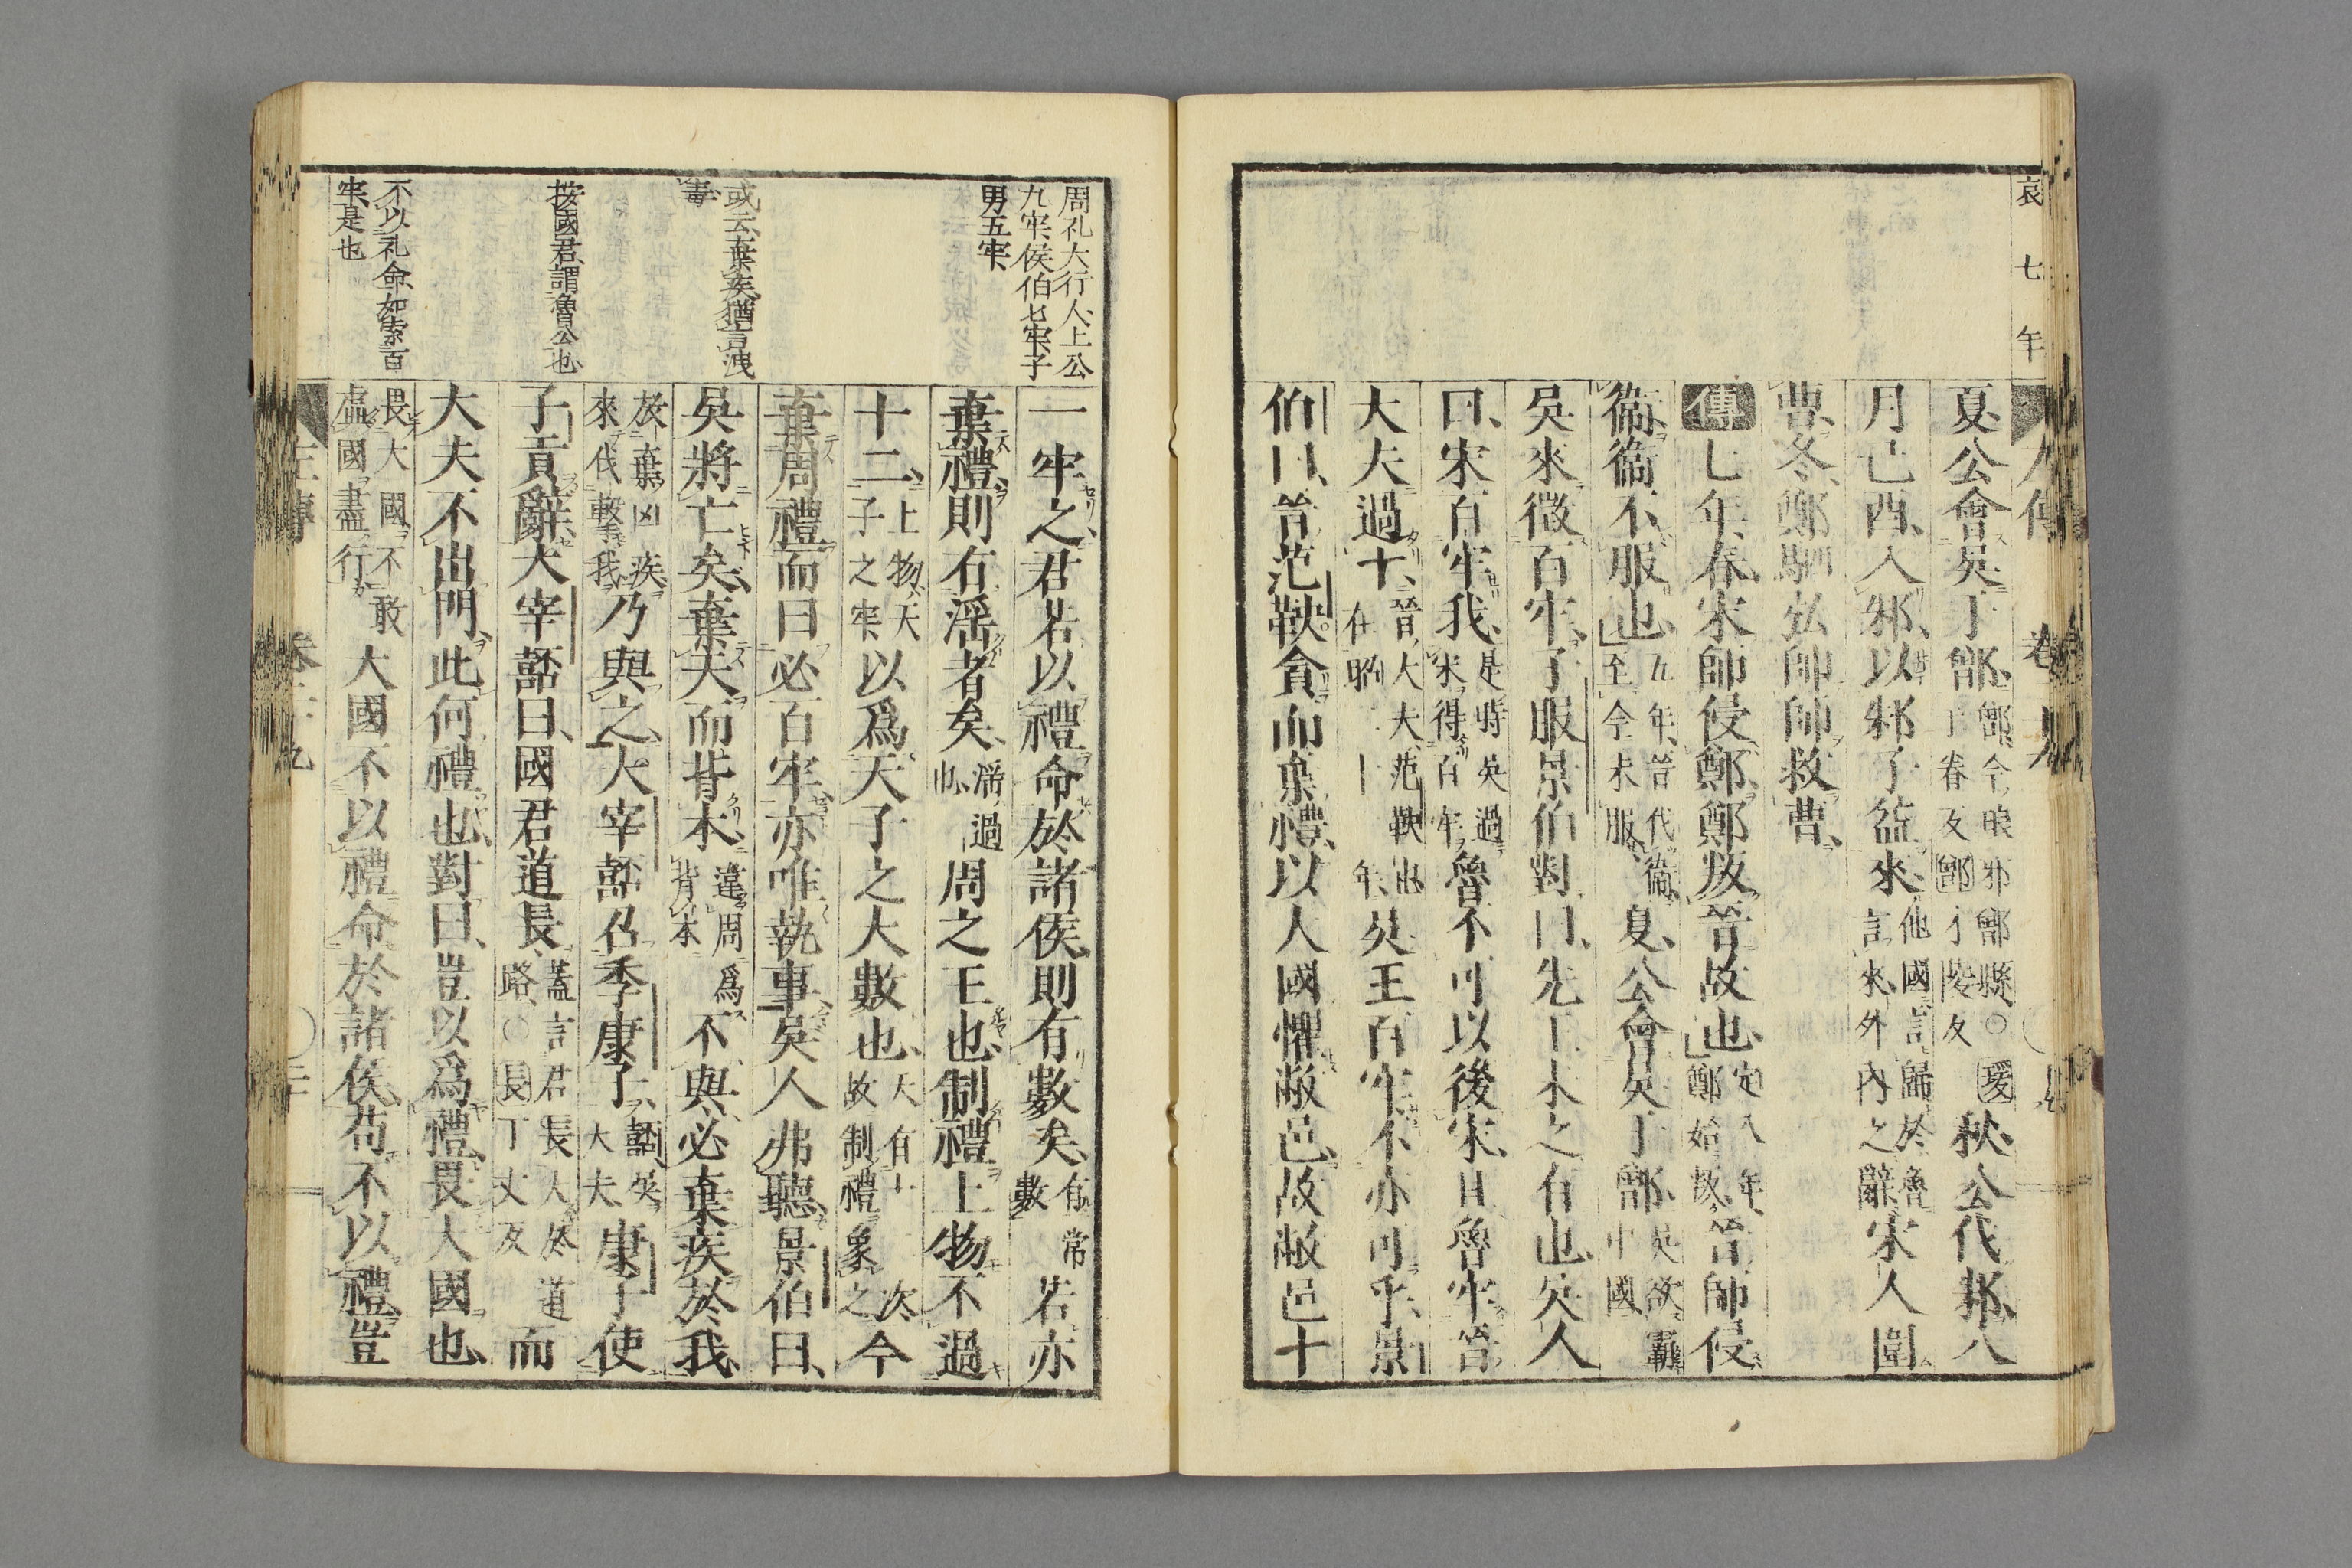 哀七年
夏公會吳于鄫鄫今琅邪鄫縣○鄫才陵反秋公伐邾八
月己酉入邾以邾子益來他國言歸於魯言來外內之辭宋人圍
曹冬鄭駟弘帥師救曹
傳七年春宋師侵鄭鄭叛晉故也定八年鄭始叛晉師侵
衛衛不服也五年晉伐衛至今未服夏公會吳于鄫吳欲霸中國
吳來徵百牢子服景伯對曰先王未之有也吳人
曰宋百牢我是時吳過宋得百牢魯不可以後宋且魯牢晉
大夫過十晉大夫范鞅也在昭二十一年吳王百牢不亦可乎景
伯曰晉范鞅貪而棄禮以大國懼敝邑故敝邑十
周礼大行人上公
九牢侯伯七牢子
男五牢
一牢之君若以禮命於諸侯則有數矣有常數若亦
棄禮則有淫者矣淫過也周之王也制禮上物不過
十二上物天子之牢以爲天子之大數也天有十二次故制禮象之今
棄周禮而曰必百牢亦唯執事吳人弗聽景伯曰
或云棄疾猶言洩
毒
吳將亡矣棄天而背本違周爲背本不與必棄疾於我
放棄凶疾來伐擊我乃與之大宰嚭召季康子嚭吳大夫康子使
按國君謂魯公也
子貢辭大宰嚭曰國君道長蓋言君長大於道路○長丁丈反而
大夫不出門此何禮也對曰豈以爲禮畏大國也
不以礼命如索百
牢是也
畏大國不敢虛國盡行大國不以禮命於諸侯苟不以禮豈
左傳 卷二十九